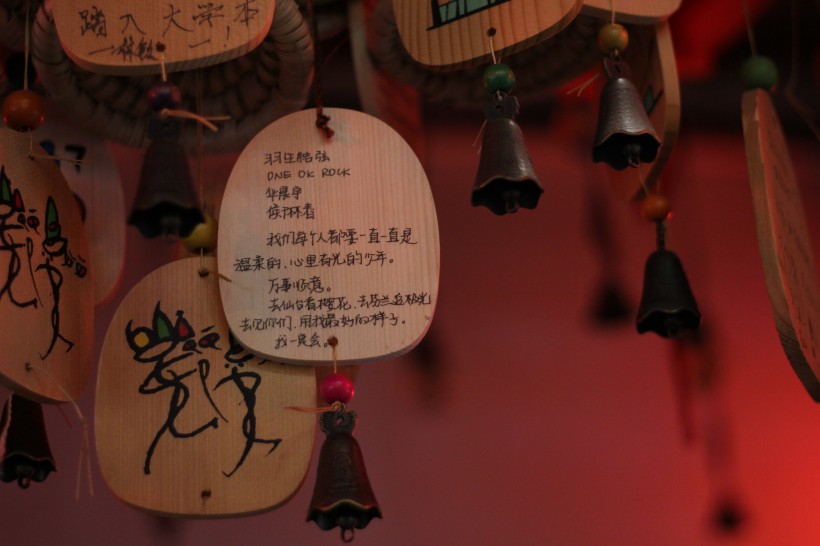 踏入大学本
羽生皓弦
ONE OK ROCK
华晨宇
侯琳香
我们每个人都要一直一直是
温柔的、心里有光的少年。
万事顺意。
去仙台看樱花、去芬兰追极光
去见你们、用我最好的样子。
我一定会。
17